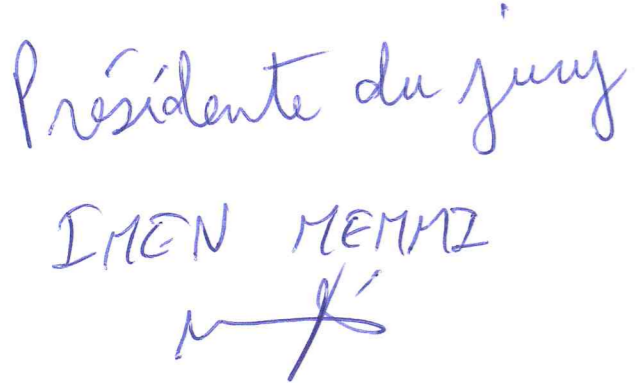 Présidente du jury
IMEN MEMMI